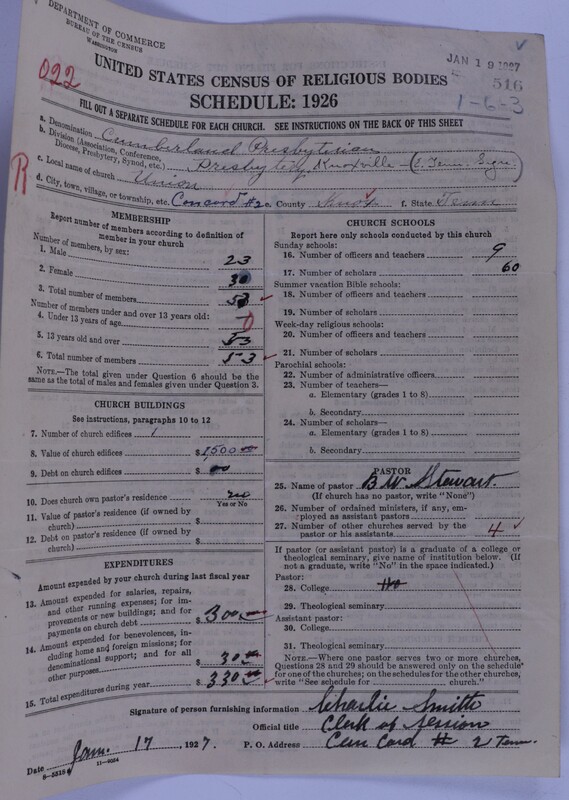 DEPARTMENT OF COMMERCE
BUREAU OF THE CENSUS
WASHINGTON
JAN 19 1927
516
1-6-3
022
UNITED STATES CENSUS OF RELIGIOUS BODIES
SCHEDULE: 1926
FILL OUT A SEPARATE SCHEDULE FOR EACH CHURCH. SEE INSTRUCTIONS ON THE BACK OF THIS SHEET
a. Denomination Cumberland Presbyterian
b. Division (Association, Conference, Diocese, Presbytery, Synod, etc.) Presbytery, Knoxville (E. Tenn. Syn.)
c. Local name of church Union
R
d. City, town, village, or township, etc. Concord #2 e. County Knox f. State Tenn
MEMBERSHIP
Report number of members according to definition of member in your church
Number of members, by sex:
1. Male 23
2. Female 30
3. Total number of members 53
Number of members under and over 13 years old:
4. Under 13 years of age 0
5. 13 years old and over 53
6. Total number of members 53
NOTE.—The total given under Question 6 should be the same as the total of males and females given under Question 3.
CHURCH BUILDINGS
See instructions, paragraphs 10 to 12
7. Number of church edifices 1
8. Value of church edifices $ 1,500 00
9. Debt on church edifices $ 00
10. Does church own pastor's residence no
Yes or No
11. Value of pastor's residence (if owned by church) $
12. Debt on pastor's residence (if owned by church) $
EXPENDITURES
Amount expended by your church during last fiscal year
13. Amount expended for salaries, repairs, and other running expenses; for improvements or new buildings; and for payments on church debt $ 300 00
14. Amount expended for benevolences, including home and foreign missions; for denominational support; and for all other purposes $ 30 00
15. Total expenditures during year $ 330 00
CHURCH SCHOOLS
Report here only schools conducted by this church
Sunday schools:
16. Number of officers and teachers 9
17. Number of scholars 60
Summer vacation Bible schools:
18. Number of officers and teachers
19. Number of scholars
Week-day religious schools:
20. Number of officers and teachers
21. Number of scholars
Parochial schools:
22. Number of administrative officers
23. Number of teachers—
a. Elementary (grades 1 to 8)
b. Secondary
24. Number of scholars—
a. Elementary (grades 1 to 8)
b. Secondary
PASTOR
25. Name of pastor B.W. Stewart.
(If church has no pastor, write "None")
26. Number of ordained ministers, if any, employed as assistant pastors
27. Number of other churches served by the pastor or his assistants 4
If pastor (or assistant pastor) is a graduate of a college or theological seminary, give name of institution below. (If not a graduate, write "No" in the space indicated.)
Pastor:
28. College No
29. Theological seminary
Assistant pastor:
30. College
31. Theological seminary
NOTE.—Where one pastor serves two or more churches, Questions 28 and 29 should be answered only on the schedule for one of the churches; on the schedules for the other churches, write "See schedule for church."
Signature of person furnishing information Charlie Smith
Official title Clerk of Session
Date Jan. 17, 1927. P. O. Address Con Cord # 2 Tenn.
8-5518 11-9024